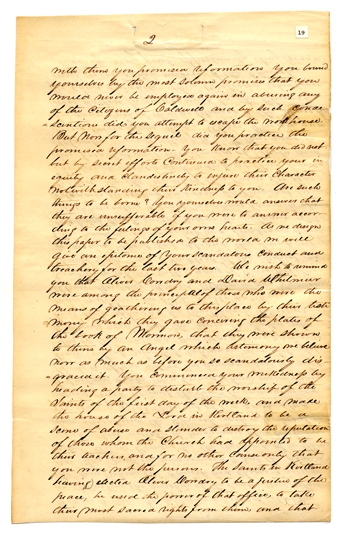 19
2
with them you promised reformation You bound
yourselves by the most solemn promises that you
would never be employed again in abusing any
of the Citizens of Caldwell and by such Conde
scentions did you attempt to escape the workhouse
But Now for the Sequel did you practice the
promised reformation. You know that you did not
but by secret efforts Continued to practice your in
equity and Clandestinly to injure their Character
Notwithstanding their kindness to you Are such
things to be borne? You yourselves would answer that
they are unsufferable if you were to answer accor
ding to the feelings of your own hearts. As we design
this paper to be published to the world we will
give an epitome of your scandalous conduct and
treachery for the last two years. We wish to remind
you that Oliver Cowdry and David Whitmer
were among the principal of those who were the
means of geathering us to this place by their testi
mony which they gave concerning the plates of
the book of Mormon, that they were shown
to them by an Angel which testimony we believe
now as much as before you so scandalously dis
graced it. You commenced your wickedness by
heading a party to disturb the worship of the
Saints of the first day of the week, and made
the house of the Lord in Kirtland to be a
scene of abuse and slander to destroy the reputation
of those whom the Church had appointed to be
their teachers and for no other cause only that
you were not the persons. The Saints in Kirtland
having elected Oliver Cowdry to be a justice of the
peace, he used the power of that office to take
their most sacred rights from them and that